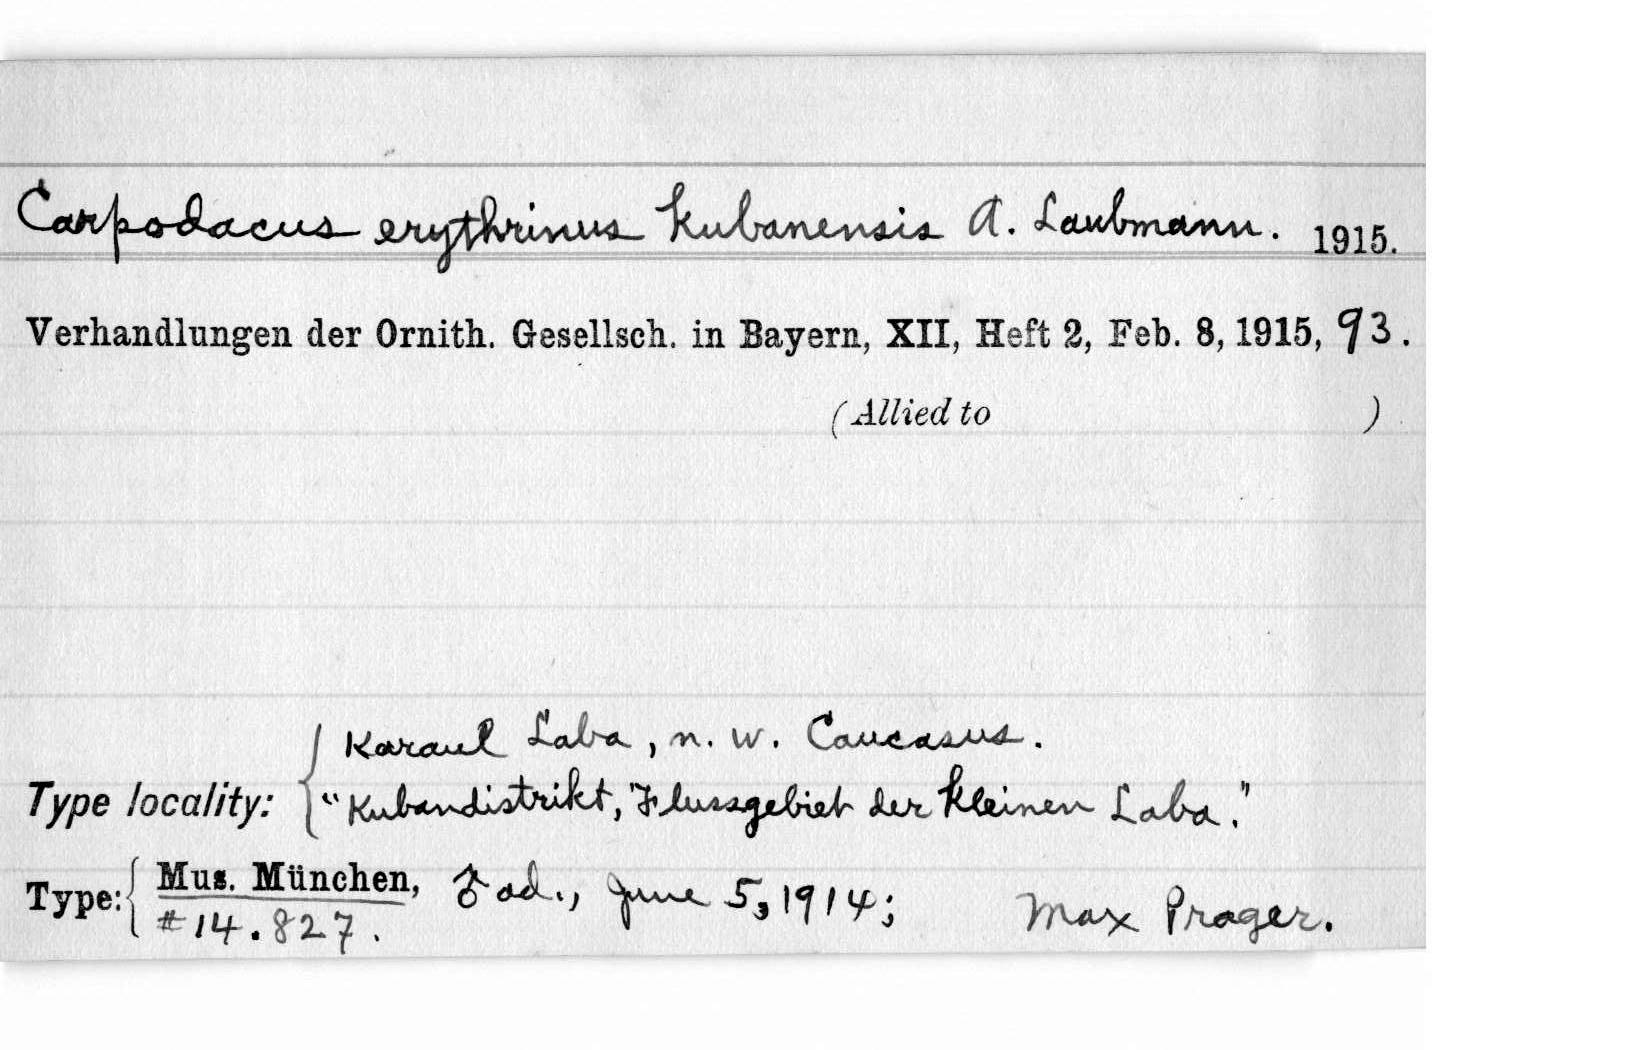 Carpodacus erythrinus kubanensis A. Laubmann. 1915.
Verhandlungen der Ornith. Gesellsch. in Bayern, XII, Heft 2, Feb. 8, 1915, 93.
(Allied to )
Karaul Laba, n. w. Caucasus.
Type locality: "Kubandistrikt, Flussgebiet der kleinen Laba."
Type: Mus. München, ♂ ad., June 5, 1914; Max Prager.
#14.827.